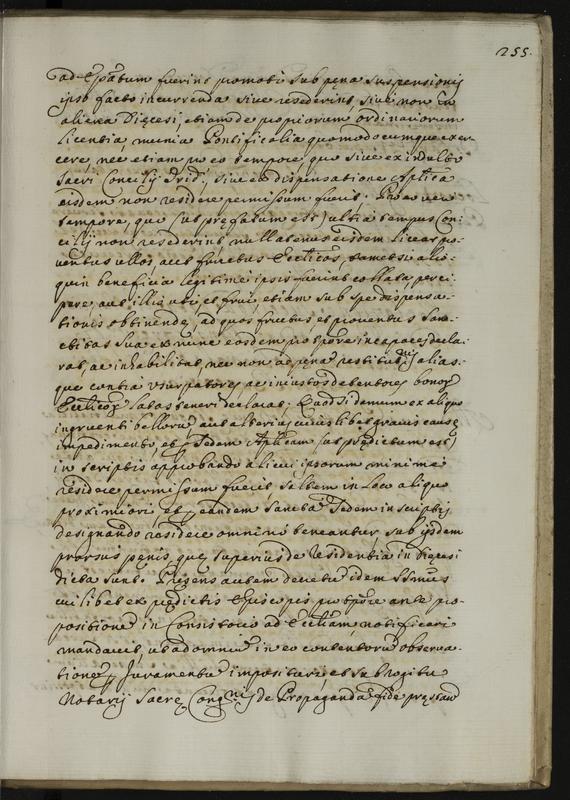 255.
ad Ep̃atum fuerint promoti sub pęna suspensionis
ipso facto incurrenda sive resederint, sive non in
aliena Dięcesi, etiam de propriorum ordinariorum
licentia, munia Pontificalia quomodocumque exer
cere, nec etiam pro eo tempore, quo sive ex indulto
Sacri Concilij Trid., sive ex dispensatione Aplica
eisdem non residere permissum fuerit. Pro eo vero
tempore, quo (ut pręfatum est) ultra tempus Con:
cilij non resederint, nullatenus eisdem liceat pro:
ventus ullos, aut fructus Ecclicos, tametsi alio:
quin beneficia legitimè ipsis fuerint collata, perci:
pere, aut illis uti, et frui, etiam sub spe dispensa:
tionis obtinendę, ad quos fructus et proventus Sanc
titas Sua ex nunc eosdem pro tp̃ore incapaces decla
rat, ac inhabilitat, nec non ad pęna restitutnis alias:
que contra usurpatores, ac iniustos detentores bonor
Ecclicor latas teneri declarat; Quod si demum ex aliquo
ingruenti bellorum aut alterius cuiuslibet gravis causę
impedimento, et p Sedem Aplicam (ut prędictum est)
in scriptis approbando alicui ipsorum minimè
residere permissum fuerit saltem in loco aliquo
proximiori et p eandem Sanctã Sedem in scriptis
designando residere omninò teneantur, sub ijsdem
prorsus pęnis, quę superius de residentia in Dięcesi
dicta sunt. Pręsens autem decretũ idem SSmus
cuilibet ex prędictis Episcopis pro tp̃ore ante pro:
positionẽ in Consistorio ad Ecclãm, notificari
mandavit, ut ad omniũ in eo contentorũ observa:
tionem p Juramentũ impositum et subrogitu
Notarij Sacrę Congnis de Propaganda fide pręstan